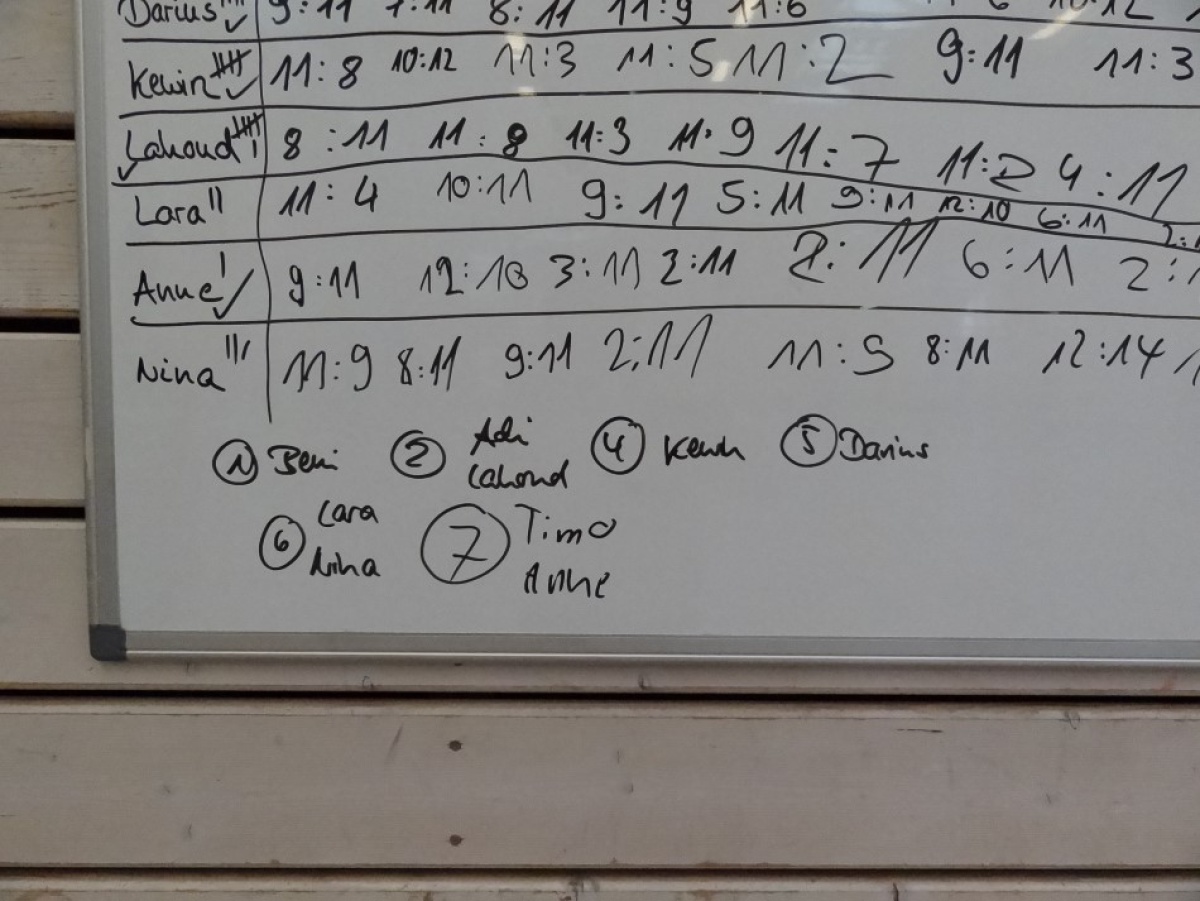 Darius 9:11 7:11 8:11 11:9 11:6 10:12
Kewin 11:8 10:12 11:3 11:5 11:2 9:11 11:3
Lahoud 8:11 11:8 11:3 11:9 11:7 11:2 4:11
Lara 11:4 10:11 9:11 5:11 9:11 12:10 6:11
Anne 9:11 12:10 3:11 2:11 2:11 6:11
Nina 11:9 8:11 9:11 2:11 11:5 8:11 12:14
① Beni ② Adi Lahoud ④ Kewin ⑤ Darius
⑥ Lara Nina ⑦ Timo Anne